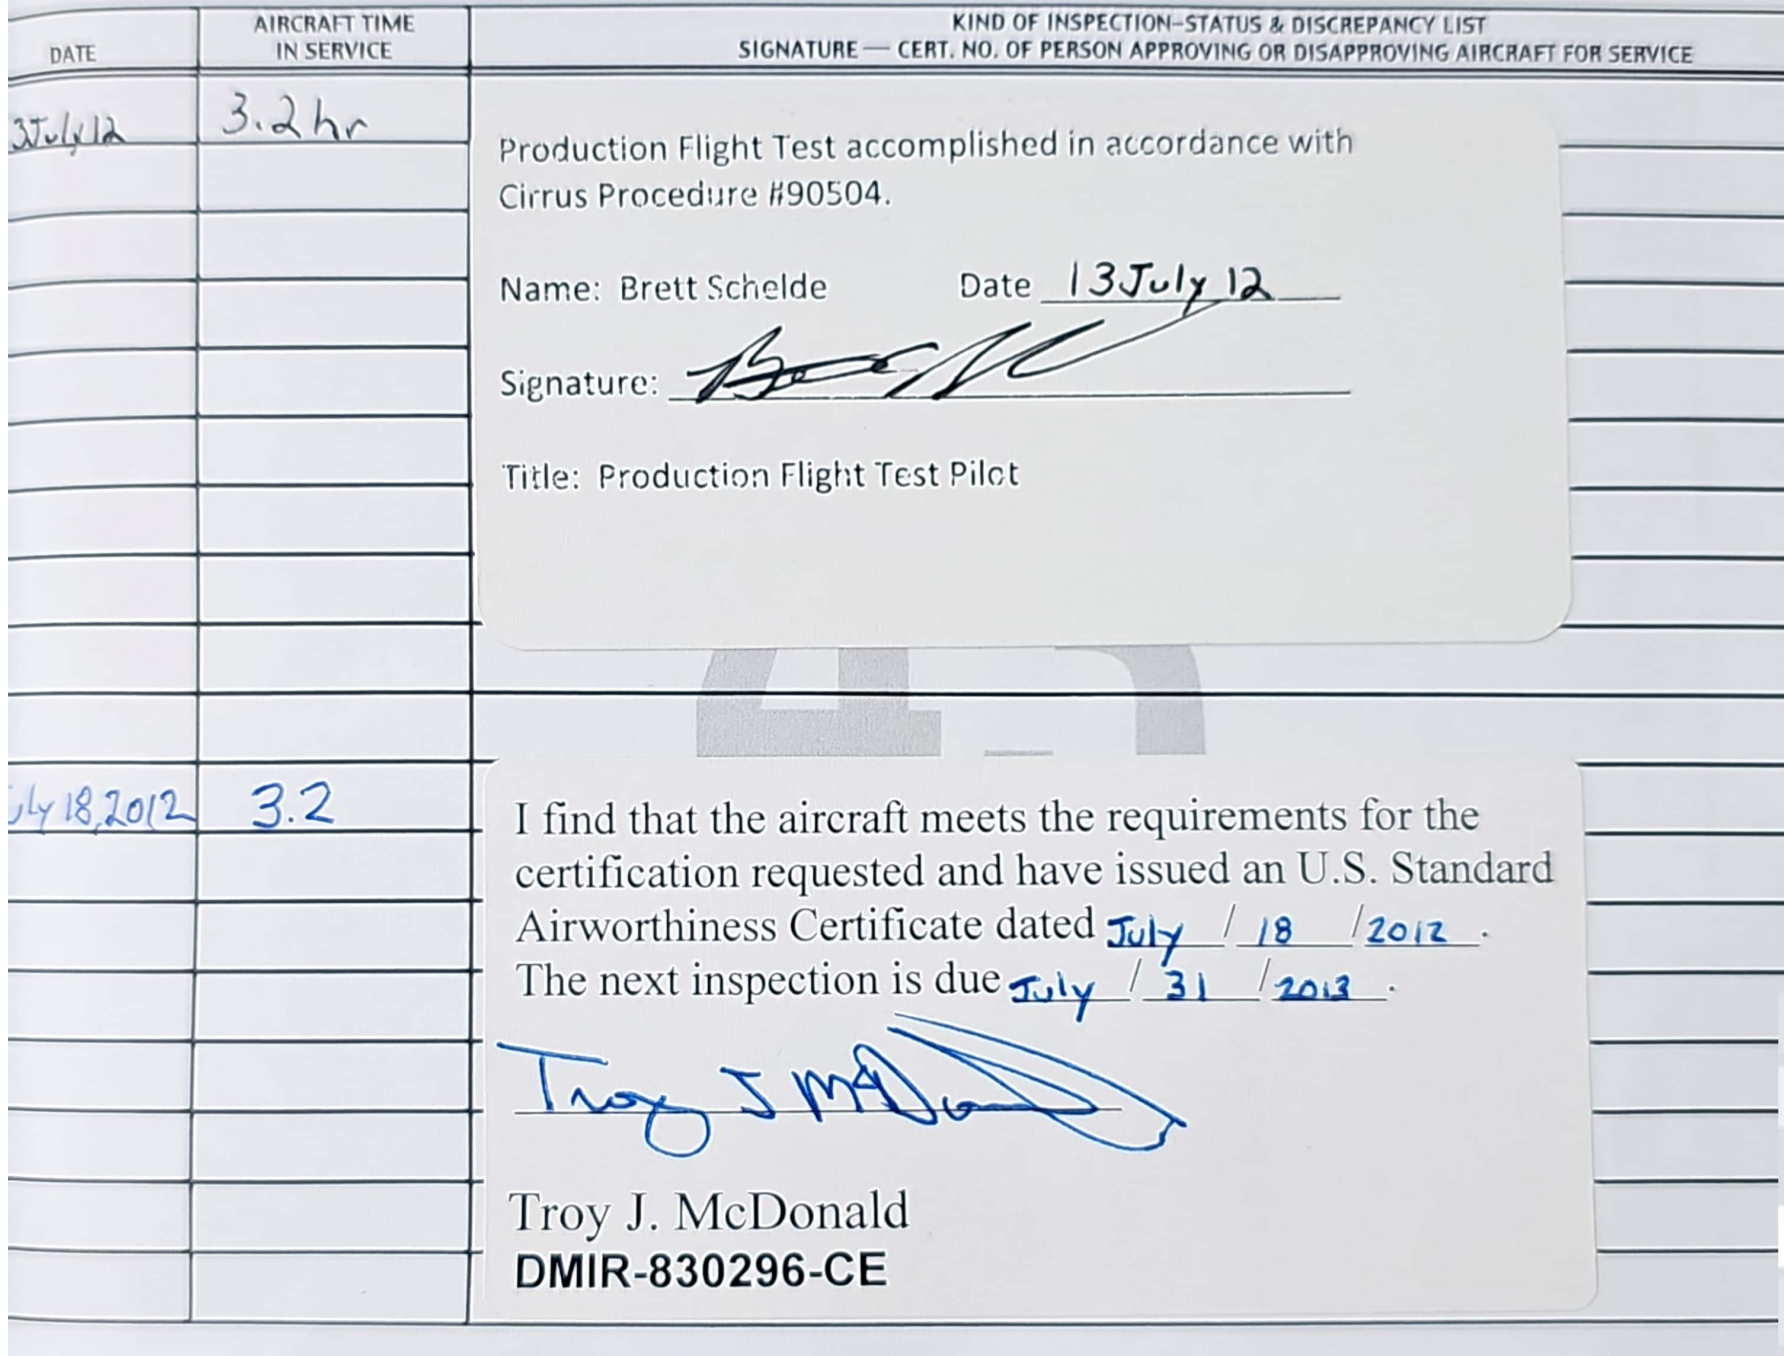 DATE
AIRCRAFT TIME
IN SERVICE
KIND OF INSPECTION–STATUS & DISCREPANCY LIST
SIGNATURE — CERT. NO. OF PERSON APPROVING OR DISAPPROVING AIRCRAFT FOR SERVICE
3July12
3.2 hr
Production Flight Test accomplished in accordance with
Cirrus Procedure #90504.
Name: Brett Schelde Date 13July 12
Signature:
Title: Production Flight Test Pilot
uly 18,2012
3.2
I find that the aircraft meets the requirements for the
certification requested and have issued an U.S. Standard
Airworthiness Certificate dated July / 18 / 2012 .
The next inspection is due July / 31 / 2013 .
Troy J McDonald
Troy J. McDonald
DMIR-830296-CE